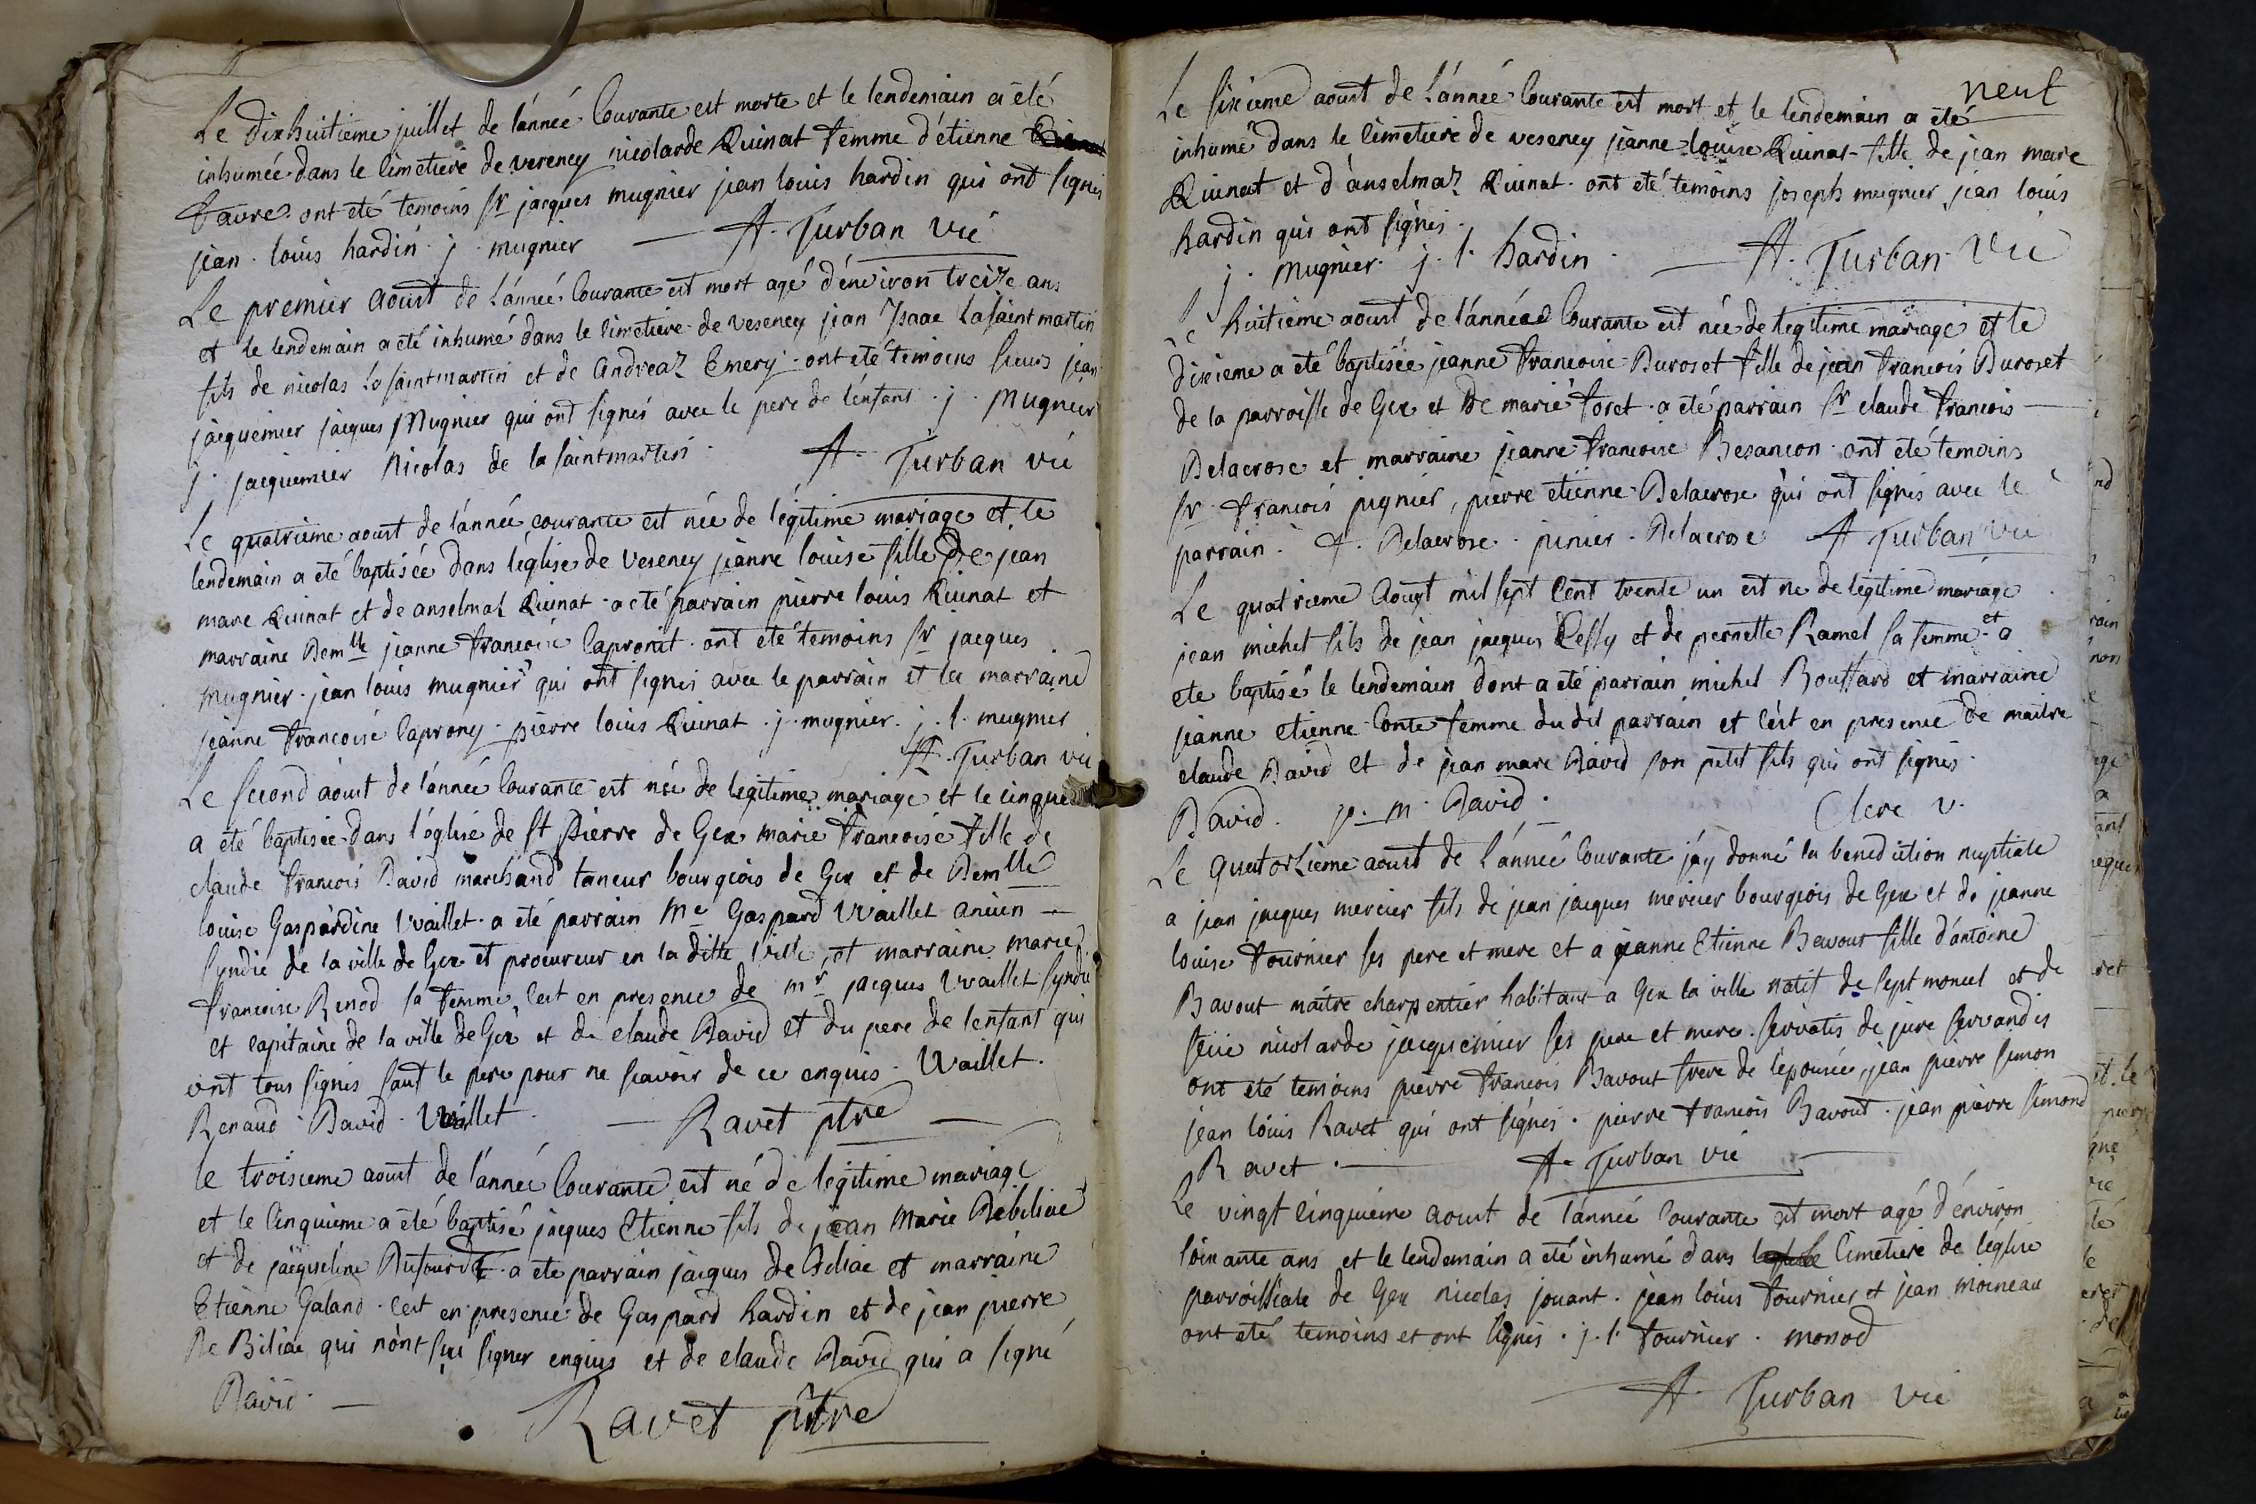 Le dixhuitieme juillet de l'année Courante est morte et le lendemain a été
inhumée dans le Cimetiere de vereney nicolarde Quinat femme d'étienne
favre ont eté temoins Sr jacques mugnier jean louis hardin qui ont signés
jean louis hardin j mugnier A. Turban vic
Le premier Aoust de L'année Courante est mort agé d'environ treize ans
et le lendemain a eté inhumé dans le Cimetiere de veseney jean Isaac Lasaintmartin
fils de nicolas Lasaintmartin et de Andreaz Emery ont eté temoins sieurs jean
jacquemier jacques Mugnier qui ont signés avec le pere de l'enfant j. Mugnier
j. jacquemier Nicolas de la saintmartin A. Turban vic
Le quatrieme aoust de l'année courante est née de légitime mariage et le
lendemain a eté baptisée dans l'église de veseney jeanne louise fille de jean
marc Quinat et de anselmaz Quinat a eté parrain pierre louis Quinat et
marraine Demlle jeanne francoise Capronet ont eté temoins Sr jacques
mugnier jean louis mugnier qui ont signés avec le parrain et la marraine
jeanne francoise Caprony pierre louis Quinat j. mugnier j. l. mugnier
A. Turban vic
Le second aoust de l'année Courante est née de legitime mariage et le cinquie
a eté baptisée dans l'église de St Pierre de Gex marie francoise fille de
claude francois David marchand taneur bourgeois de Gex et de Demlle
louise Gaspardine Vvaillet a eté parrain Me Gaspard Vvaillet ancien
syndic de la ville de Gex et procureur en la ditte ville, et marraine marie
francoise Renod sa femme C'est en presence de mr jacques Vvaillet syndic
et capitaine de la ville de Gex et de claude David et du pere de l'enfant qui
ont tous signés sauf le pere pour ne scavoir de ce enquis Vvaillet.
Renaud David Vvaillet Ravet ptre
le troisieme aoust de l'année Courante est né de legitime mariage
et le Cinquieme a eté baptisé jacques Etienne fils de jean Marie Debiliac
et de jacqueline Dufour a ete parrain jacques de Biliac et marraine
Etienne Galand C'est en presence de Gaspard hardin et de jean pierre
De Biliac qui n'ont sçu signer enquis et de claude David qui a signé
David.
Ravet ptre
neuf
Le sixieme aoust de L'année Courante est mort et le lendemain a été
inhumé dans le Cimetiere de veseney jeanne louise Quinat fille de jean marc
Quinat et d'anselmaz Quinat ont eté temoins joseph mugnier jean louis
hardin qui ont signés.
j. Mugnier. j. l. hardin. A. Turban Vic
Le huitieme aoust de l'année Courante est née de legitime mariage et le
dixieme a eté baptisée jeanne francoise Duroset fille de jean francois Duroset
de la parroisse de Gex et De marie foret a eté parrain Sr claude francois
Delacrose et marraine jeanne francoise Besancon ont eté temoins
Sr francois pignier, pierre etienne Delacrose qui ont signés avec le
parrain. Delacrose. pinier. Delacrose A Turban vic
Le quatrieme Aoust mil sept Cent trente un est né de legitime mariage
jean michel fils de jean jacques Cessy et de pernette Ramel sa femme et a
ete baptisé le lendemain dont a eté parrain michel Bouffard et marraine
jeanne etienne Conte femme du dit parrain et C'est en presence de maitre
claude David et de jean marc David son petit fils qui ont signés.
David. m. David. Clerc v.
Le quatorzieme aoust de L'année Courante j'ay donné la benediction nuptiale
a jean jacques mercier fils de jean jacques mercier bourgeois de Gex et de jeanne
louise fournier ses pere et mere et a jeanne Etienne Bavout fille d'antoine
Bavout maitre charpentier habitant a Gex la ville natif de sept moncel et de
feüe nicolarde jacquemier ses pere et mere. servatis de jure servandis
ont eté temoins pierre francois Bavout frere de l'epousée, jean pierre simon
jean louis Ravet qui ont signés. pierre francois Bavout. jean pierre simond
Ravet. A. Turban vic
Le vingt Cinquieme aoust de l'année Courante est mort agé d'environ
soixante ans et le lendemain a eté inhumé dans Cimetiere de l'eglise
parroissiale de Gex nicolas jouant. jean louis fournier et jean moineau
ont eté temoins et ont signés. j. l. fournier. monod
A. Turban vic